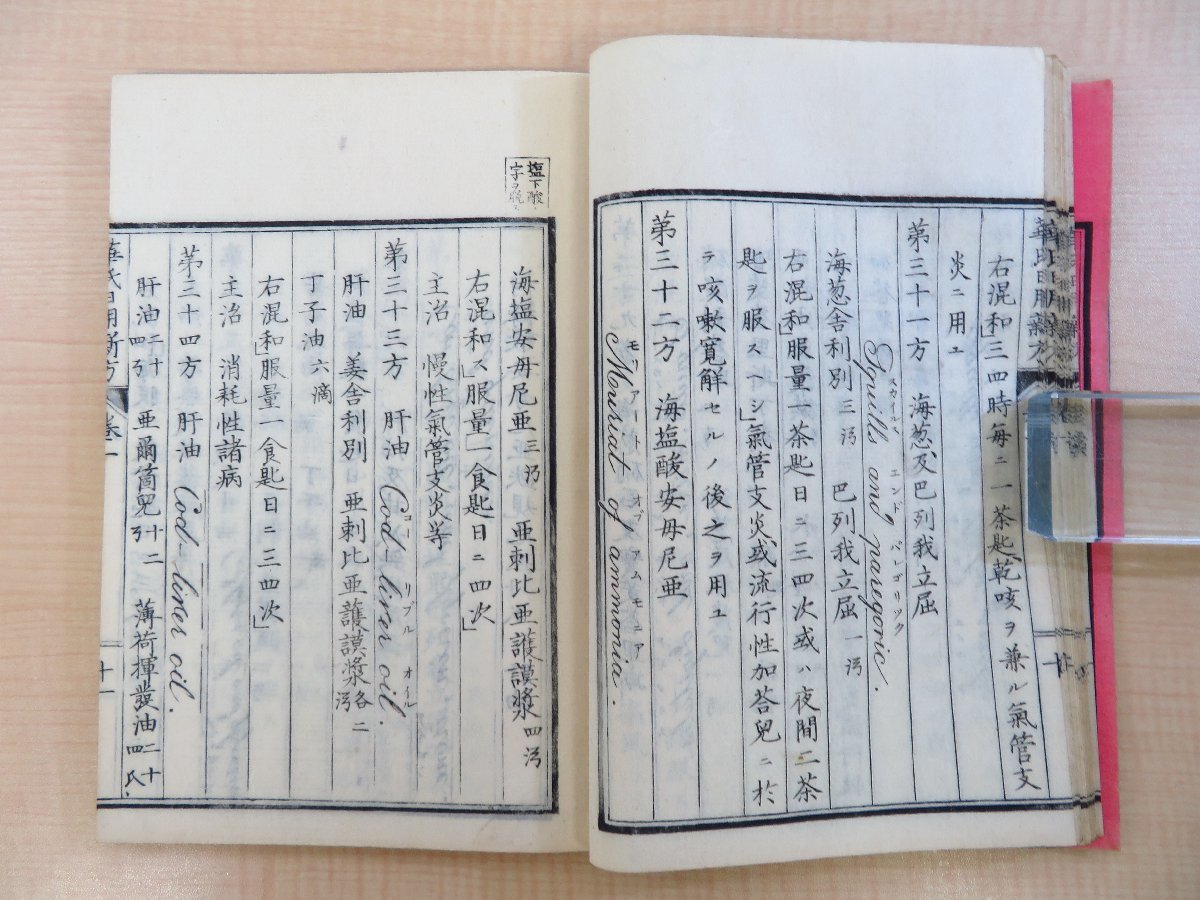 右混和」三四時每ニ一茶匙乾咳ヲ兼ル氣管支
炎ニ用ユ
第三十一方 海葱及巴列我立屈
スカイルス エンド パレゴリック
Squills and paregoric.
海葱舎利別 三㕮 巴列我立屈 一㕮
右混和」服量一茶匙日ニ三四次或ハ夜間二茶
匙ヲ服スヘシ」氣管支炎或流行性加荅兒ニ於
テ咳嗽寛解セルノ後之ヲ用ユ
第三十二方 海塩酸安母尼亜
モウアートオブアムモニア
Mouriat of ammonia.
塩下酸ノ
字ヲ脱ス
海塩安母尼亜 三 亜剌比亜護謨漿 四
右混和ス服量」一食匙日ニ四次」
主治 慢性氣管支炎等
第三十三方 肝油 Cod-liver oil.
コー リブル オイル
肝油 姜舎利別 亜剌比亜護謨漿 各二
丁子油 六滴
右混和」服量一食匙日ニ三四次」
主治 消耗性諸病
第三十四方 肝油 Cod-liver oil.
肝油 二十四 亜爾箇兒 十二 薄荷揮發油 二十四
華氏日用新方 卷一 十一